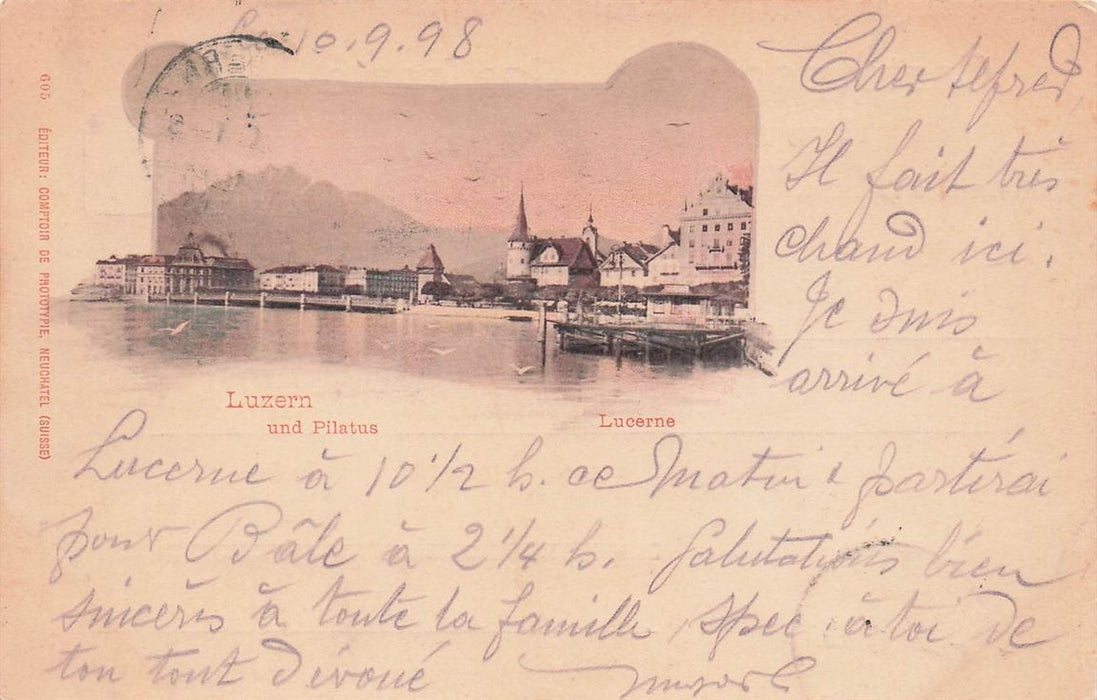 10.9.98
Cher Alfred,
Il fait très
chaud ici.
Je suis
arrivé à
Lucerne à 10 1/2 h. ce Matin & partirai
pour Bâle à 2 1/4 h. Salutations bien
sincères à toute la famille, spec. à toi de
ton tout dévoué
Luzern
und Pilatus
Lucerne
605 ÉDITEUR: COMPTOIR DE PHOTOTYPIE, NEUCHATEL (SUISSE)